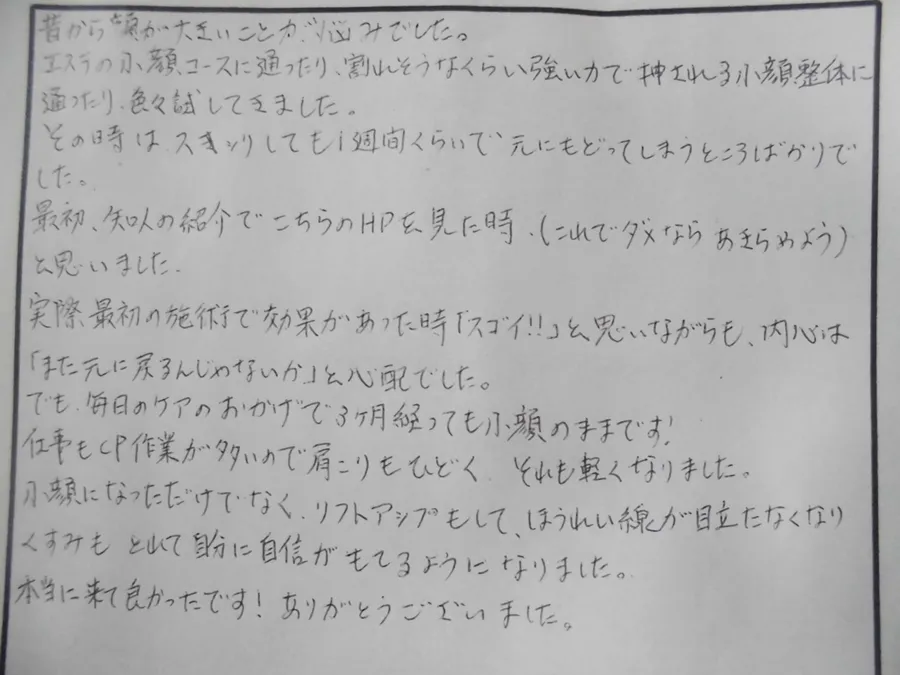 昔から顔が大きいことが悩みでした。
エステの小顔コースに通ったり、割れそうなくらい強い力で押される小顔整体に
通ったり、色々試してきました。
その時は、スッキリしても1週間くらいで元にもどってしまうところばかりで
した。
最初、知人の紹介でこちらのHPを見た時、(これでダメならあきらめよう)
と思いました。
実際最初の施術で効果があった時「スゴイ!!」と思いながらも、内心は
「また元に戻るんじゃないか」と心配でした。
でも、毎日のケアのおかげで3ヶ月経っても小顔のままです!
仕事もCP作業が多いので肩こりもひどく、それも軽くなりました。
小顔になっただけでなく、リフトアップもして、ほうれい線が目立たなくなり
くすみもとれて自分に自信がもてるようになりました。
本当に来て良かったです!ありがとうございました。